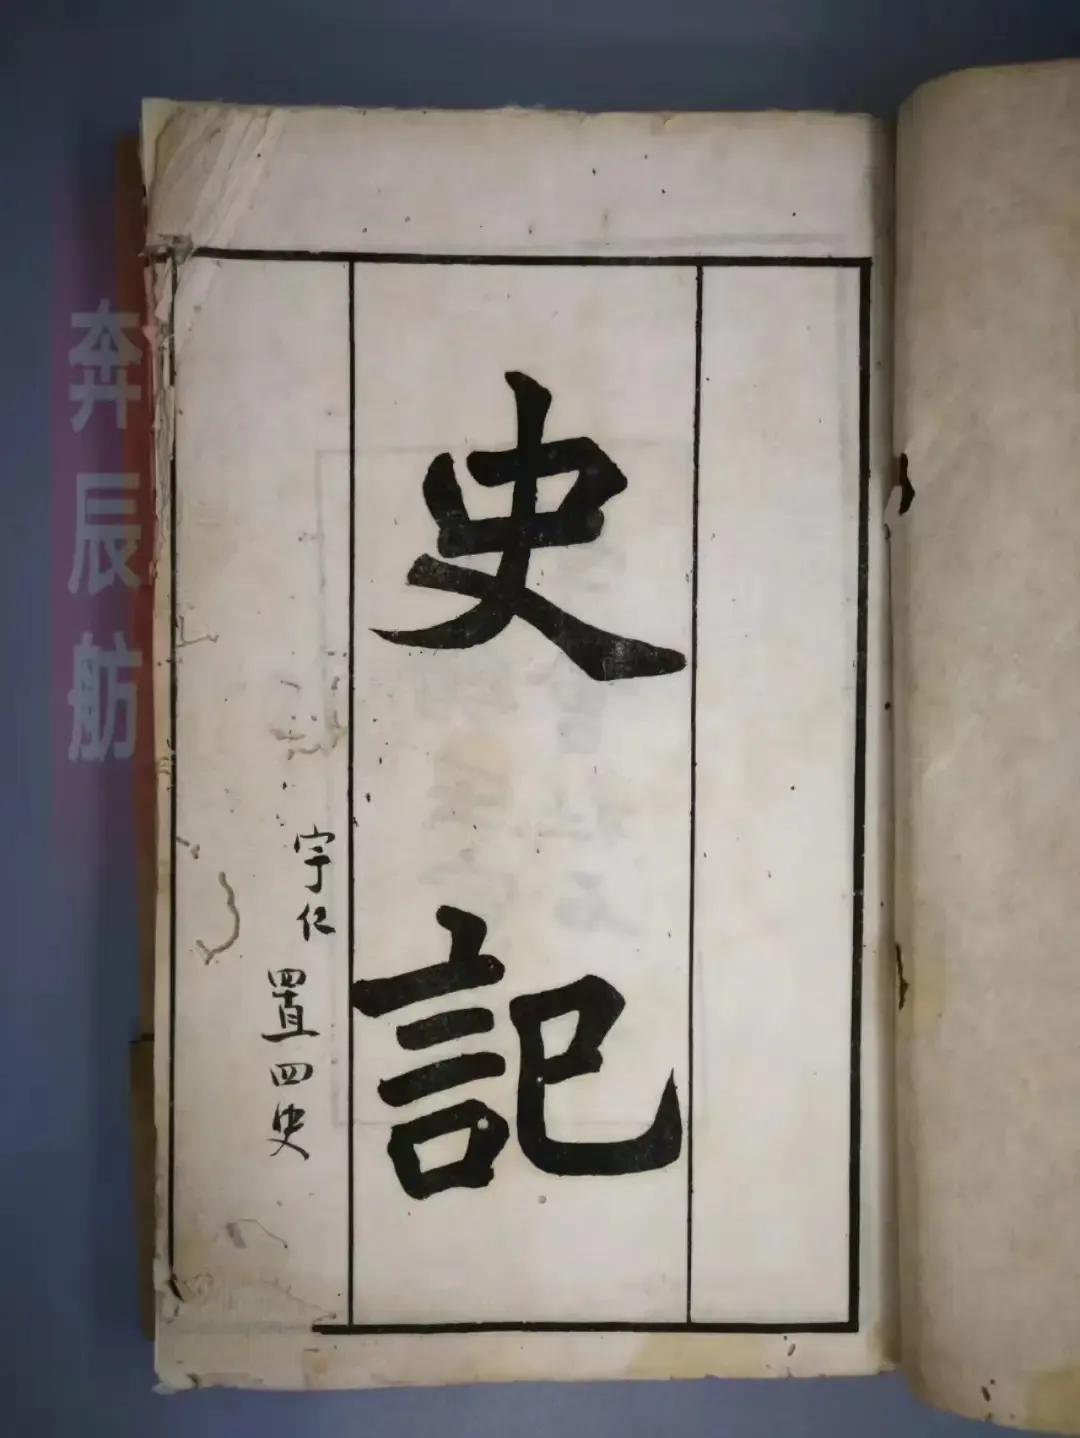 史記
宇仁
置四史
奔辰舫